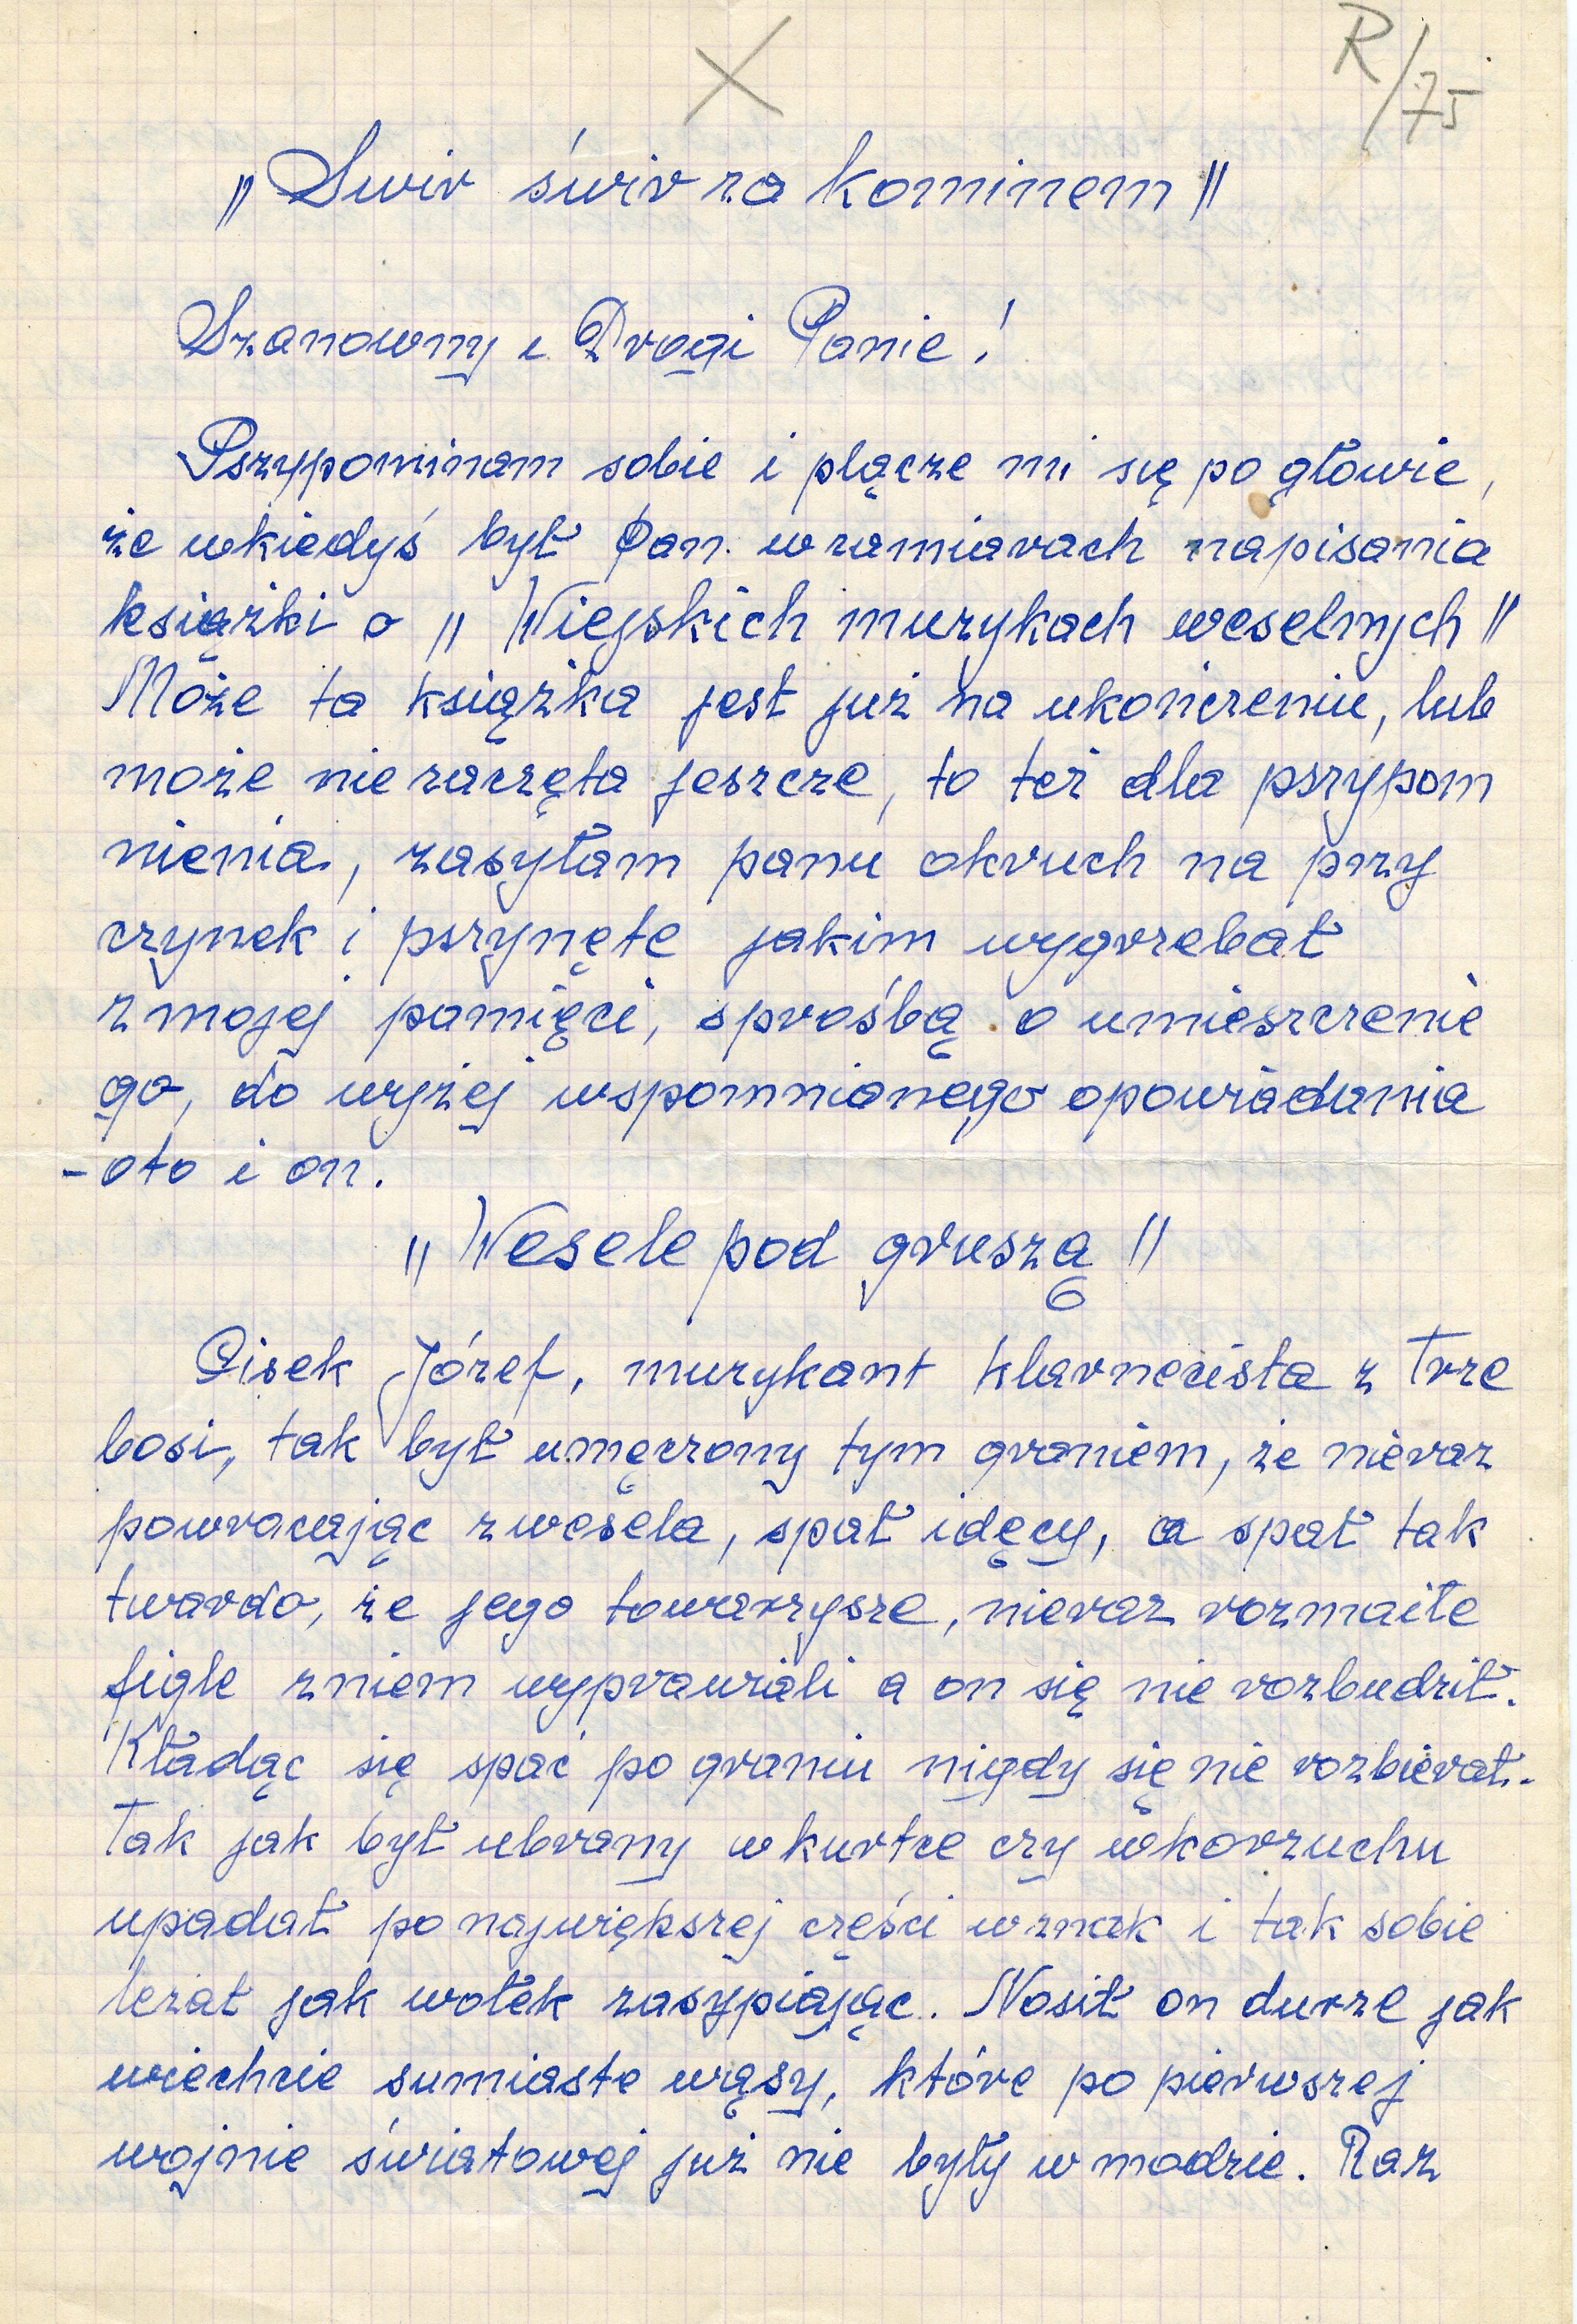 X
R/75
„Swir świr za kominem"
Szanowny i Drogi Panie!
Pszypominam sobie i plącze mi się po głowie,
że wkiedyś był Pan. wzamiarach napisania
książki o „Wiejskich muzykach weselnych"
Może ta książka jest już na ukończeniu, lub
może nie zaczęta jeszcze, to też dla pszypom
nienia, zasyłam panu okruch na przy
czynek i pszynętę jakim wygrzebał
z mojej pamięci, sprośbą o umieszczenie
go, do wyżej wspomnianego opowiadania
- oto i on.
„Wesele pod gruszą"
Cisek Józef, muzykant klarnecista z Trze
bosi, tak był umęczony tym graniem, że nieraz
powracając zwesela, spał idęcy, a spał tak
twardo, że jego towarzysze, nieraz rozmaite
figle zniem wyprawiali a on się nie rozbudził.
Kładąc się spać po graniu nigdy się nie rozbierał.
Tak jak był ubrany wkurtce czy wkorzuchu
upadał po największej części wznak i tak sobie
leżał jak wołek zasypiając. Nosił on durze jak
wiechcie sumiaste wąsy, które po pierwszej
wojnie światowej już nie były w modzie. Raz